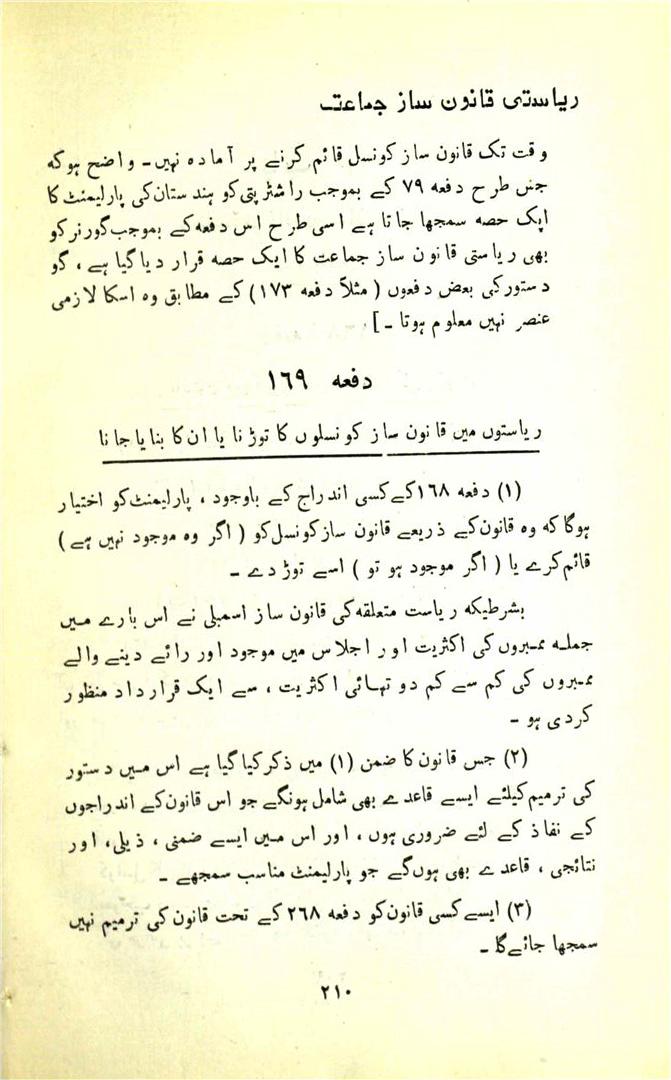 ریاستی قانون ساز جماعت
وقت تک قانون ساز کونسل قائم کرنے پر آمادہ نہیں۔ واضح ہو کہ
جس طرح دفعہ ۷۹ کے بموجب راشٹرپتی کو ہندستان کی پارلیمنٹ کا
ایک حصہ سمجھا جاتا ہے اسی طرح اس دفعہ کے بموجب گورنر کو
بھی ریاستی قانون ساز جماعت کا ایک حصہ قرار دیا گیا ہے ، گو
دستور کی بعض دفعوں ( مثلاً دفعہ ۱۷۳ ) کے مطابق وہ اسکا لازمی
عنصر نہیں معلوم ہوتا ۔ ]
دفعہ ۱۶۹
ریاستوں میں قانون ساز کونسلوں کا توڑنا یا ان کا بنایا جانا
(۱) دفعہ ۱۶۸ کے کسی اندراج کے باوجود ، پارلیمنٹ کو اختیار
ہوگا کہ وہ قانون کے ذریعے قانون ساز کونسل کو ( اگر وہ موجود نہیں ہے )
قائم کرے یا ( اگر موجود ہو تو ) اسے توڑ دے ۔
بشرطیکہ ریاست متعلقہ کی قانون ساز اسمبلی نے اس بارے میں
جملہ ممبروں کی اکثریت اور اجلاس میں موجود اور رائے دینے والے
ممبروں کی کم سے کم دو تہائی اکثریت ، سے ایک قرارداد منظور
کردی ہو ۔
(۲) جس قانون کا ضمن (۱) میں ذکر کیا گیا ہے اس میں دستور
کی ترمیم کیلئے ایسے قاعدے بھی شامل ہونگے جو اس قانون کے اندراجوں
کے نفاذ کے لئے ضروری ہوں ، اور اس میں ایسے ضمنی ، ذیلی، اور
نتائجی ، قاعدے بھی ہوں گے جو پارلیمنٹ مناسب سمجھے ۔
(۳) ایسے کسی قانون کو دفعہ ۲۶۸ کے تحت قانون کی ترمیم نہیں
سمجھا جائے گا ۔
۲۱۰